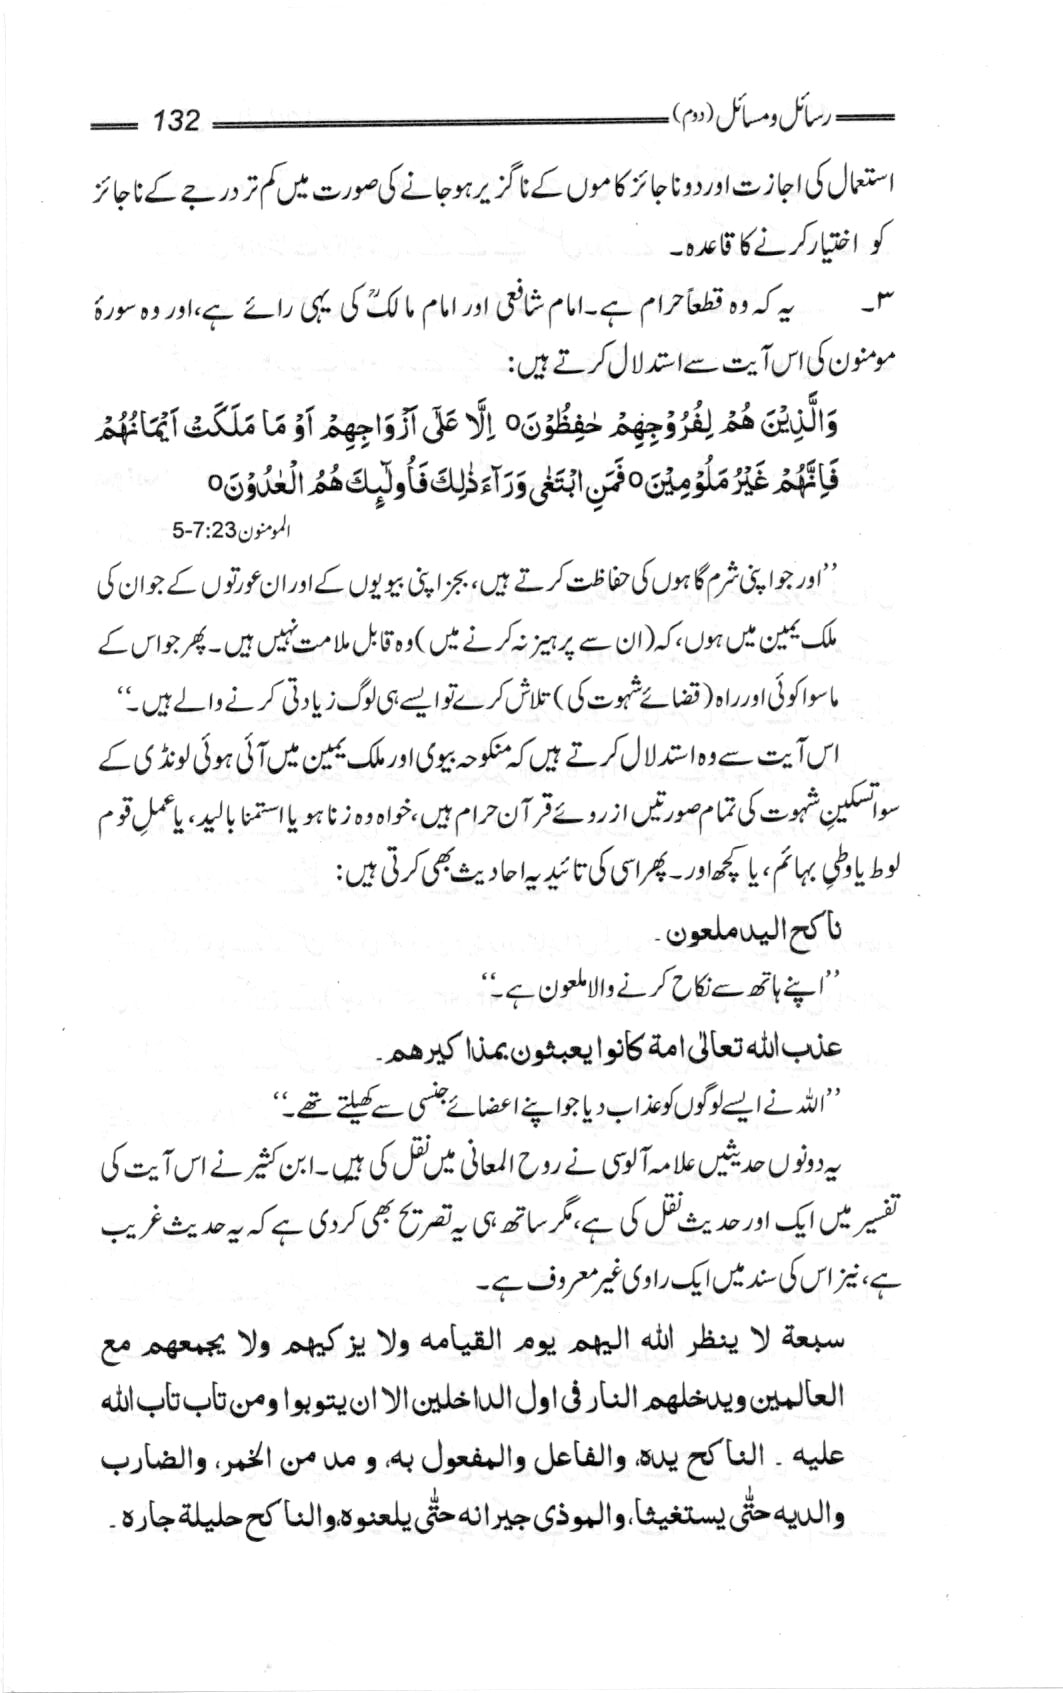 رسائل و مسائل (دوم) 132
استعمال کی اجازت اور دو ناجائز کاموں کے ناگزیر ہو جانے کی صورت میں کم تر درجے کے ناجائز
کو اختیار کرنے کا قاعدہ۔
۳۔ یہ کہ وہ قطعاً حرام ہے۔ امام شافعی اور امام مالکؒ کی یہی رائے ہے، اور وہ سورۂ
مومنون کی اس آیت سے استدلال کرتے ہیں:
وَالَّذِیْنَ هُمْ لِفُرُوْجِهِمْ حٰفِظُوْنَ○ اِلَّا عَلٰٓی اَزْوَاجِهِمْ اَوْ مَا مَلَکَتْ اَیْمَانُهُمْ
فَاِنَّهُمْ غَیْرُ مَلُوْمِیْنَ○ فَمَنِ ابْتَغٰی وَرَآءَ ذٰلِكَ فَاُولٰٓئِكَ هُمُ الْعٰدُوْنَ○
المومنون 5-7:23
’’اور جو اپنی شرم گاہوں کی حفاظت کرتے ہیں، بجز اپنی بیویوں کے اور ان عورتوں کے جو ان کی
ملک یمین میں ہوں، کہ (ان سے پرہیز نہ کرنے میں) وہ قابل ملامت نہیں ہیں۔ پھر جو اس کے
ماسوا کوئی اور راہ (قضائے شہوت کی) تلاش کرے تو ایسے ہی لوگ زیادتی کرنے والے ہیں۔‘‘
اس آیت سے وہ استدلال کرتے ہیں کہ منکوحہ بیوی اور ملک یمین میں آئی ہوئی لونڈی کے
سوا تسکینِ شہوت کی تمام صورتیں از روئے قرآن حرام ہیں، خواہ وہ زنا ہو یا استمنا بالید، یا عملِ قوم
لوط یا وطیِ بہائم، یا کچھ اور۔ پھر اسی کی تائید یہ احادیث بھی کرتی ہیں:
ناکح الید ملعون۔
’’اپنے ہاتھ سے نکاح کرنے والا ملعون ہے۔‘‘
عذب الله تعالٰی امة کانوا یعبثون بمذا کیرهم۔
’’اللہ نے ایسے لوگوں کو عذاب دیا جو اپنے اعضائے جنسی سے کھیلتے تھے۔‘‘
یہ دونوں حدیثیں علامہ آلوسی نے روح المعانی میں نقل کی ہیں۔ ابن کثیر نے اس آیت کی
تفسیر میں ایک اور حدیث نقل کی ہے، مگر ساتھ ہی یہ تصریح بھی کر دی ہے کہ یہ حدیث غریب
ہے، نیز اس کی سند میں ایک راوی غیر معروف ہے۔
سبعة لا ینظر الله الیهم یوم القیامه ولا یزکیهم ولا یجمعهم مع
العالمین ویدخلهم النار فی اول الداخلین الا ان یتوبوا ومن تاب تاب الله
علیه ۔ الناکح یدہ، والفاعل والمفعول به، و مدمن الخمر، والضارب
والدیه حتّٰی یستغیثا، والموذی جیرانه حتّٰی یلعنوہ، والناکح حلیلة جارہ۔